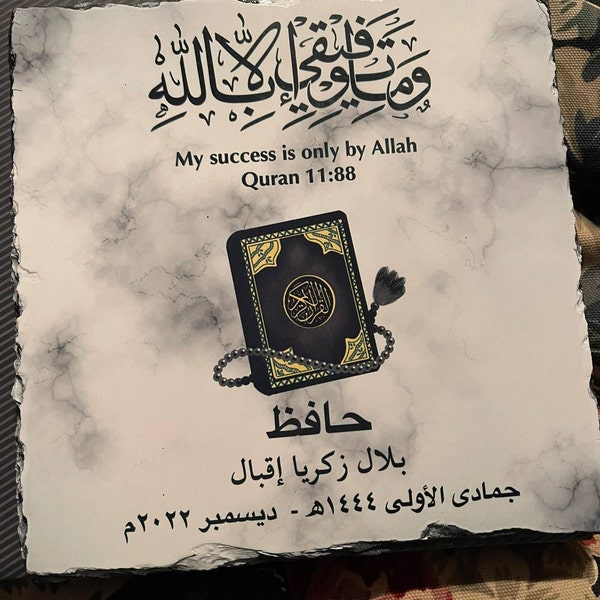 وَمَا تَوْفِيقِي إِلَّا بِاللَّهِ
My success is only by Allah
Quran 11:88
القرآن الكريم
حافظ
بلال زكريا إقبال
جمادى الأولى ١٤٤٤هـ - ديسمبر ٢٠٢٢م